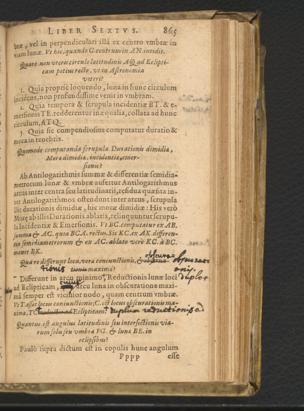 LIBER SEXTVS. 865
bræ, vel in perpendiculari illâ ex centro vmbræ in
viam lunæ. Vt hic, quando G centrum in AN incidit.
Quare non vtenti circulo latitudinis
pticam potius rollo, vt in Astronomia
veteri?
1. Quia propriè loquendo, luna in hunc circulum
incidens, non prosum dissimile venit in vmbram.
2. Quia tempora & scrupula incidentiæ BT. & e-
mersionis TE. redderentur inæqualia, collata ad hunc
circulum, ATQ.
3. Quia sic compendiosius computatur duratio &
mora in tenebris.
Quomodo computanda scrupula Durationis dimidia,
Mora dimidia, incidentia, emer-
sionis?
Ab Antilogarithmis summæ & differentiæ semidia-
metrorum lunæ & vmbræ aufertur Antilogarithmus
arcus inter centra seu latitudinis, residua quæsita in-
ter Antilogarithmos ostendunt inter arcus, scrupula
illic durationis dimidiæ, hic moræ dimidiæ: His verò
Moræ ab illis Durationis ablatis, relinquuntur scrupu-
la Incidentiæ & Emersionis. Vt BC computatur ex AB.
summa & AC. quia BCA. rectus. Sic KC. ex AK differen-
tia semidiametrorum & ex AC. ablato verò KC. à BC.
manet BK.
Qua re differunt loca, vera coniunctionis, &
maxima?
Differunt in arcu minimo, Reductionis lunæ loci
ad Eclipticam; arcu luna in obscuratione maxi-
mâ semper est vicinior nodo, quam centrum vmbræ.
Vt T. est locus coniunctionis; C. est locus obscurationis ma-
xima, TC. Eclipticam. duplum reductionis ad
Quantus est angulus latitudinis seu intersectionis via-
rum solis seu vmbræ FG. & luna BE. in
eclipsibus?
Paulò supra dictum est in copulis hunc angulum
Pppp esse